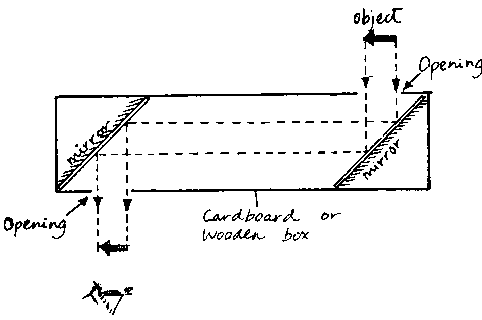 object
Opening
mirror
mirror
Opening
Cardboard or
Wooden box